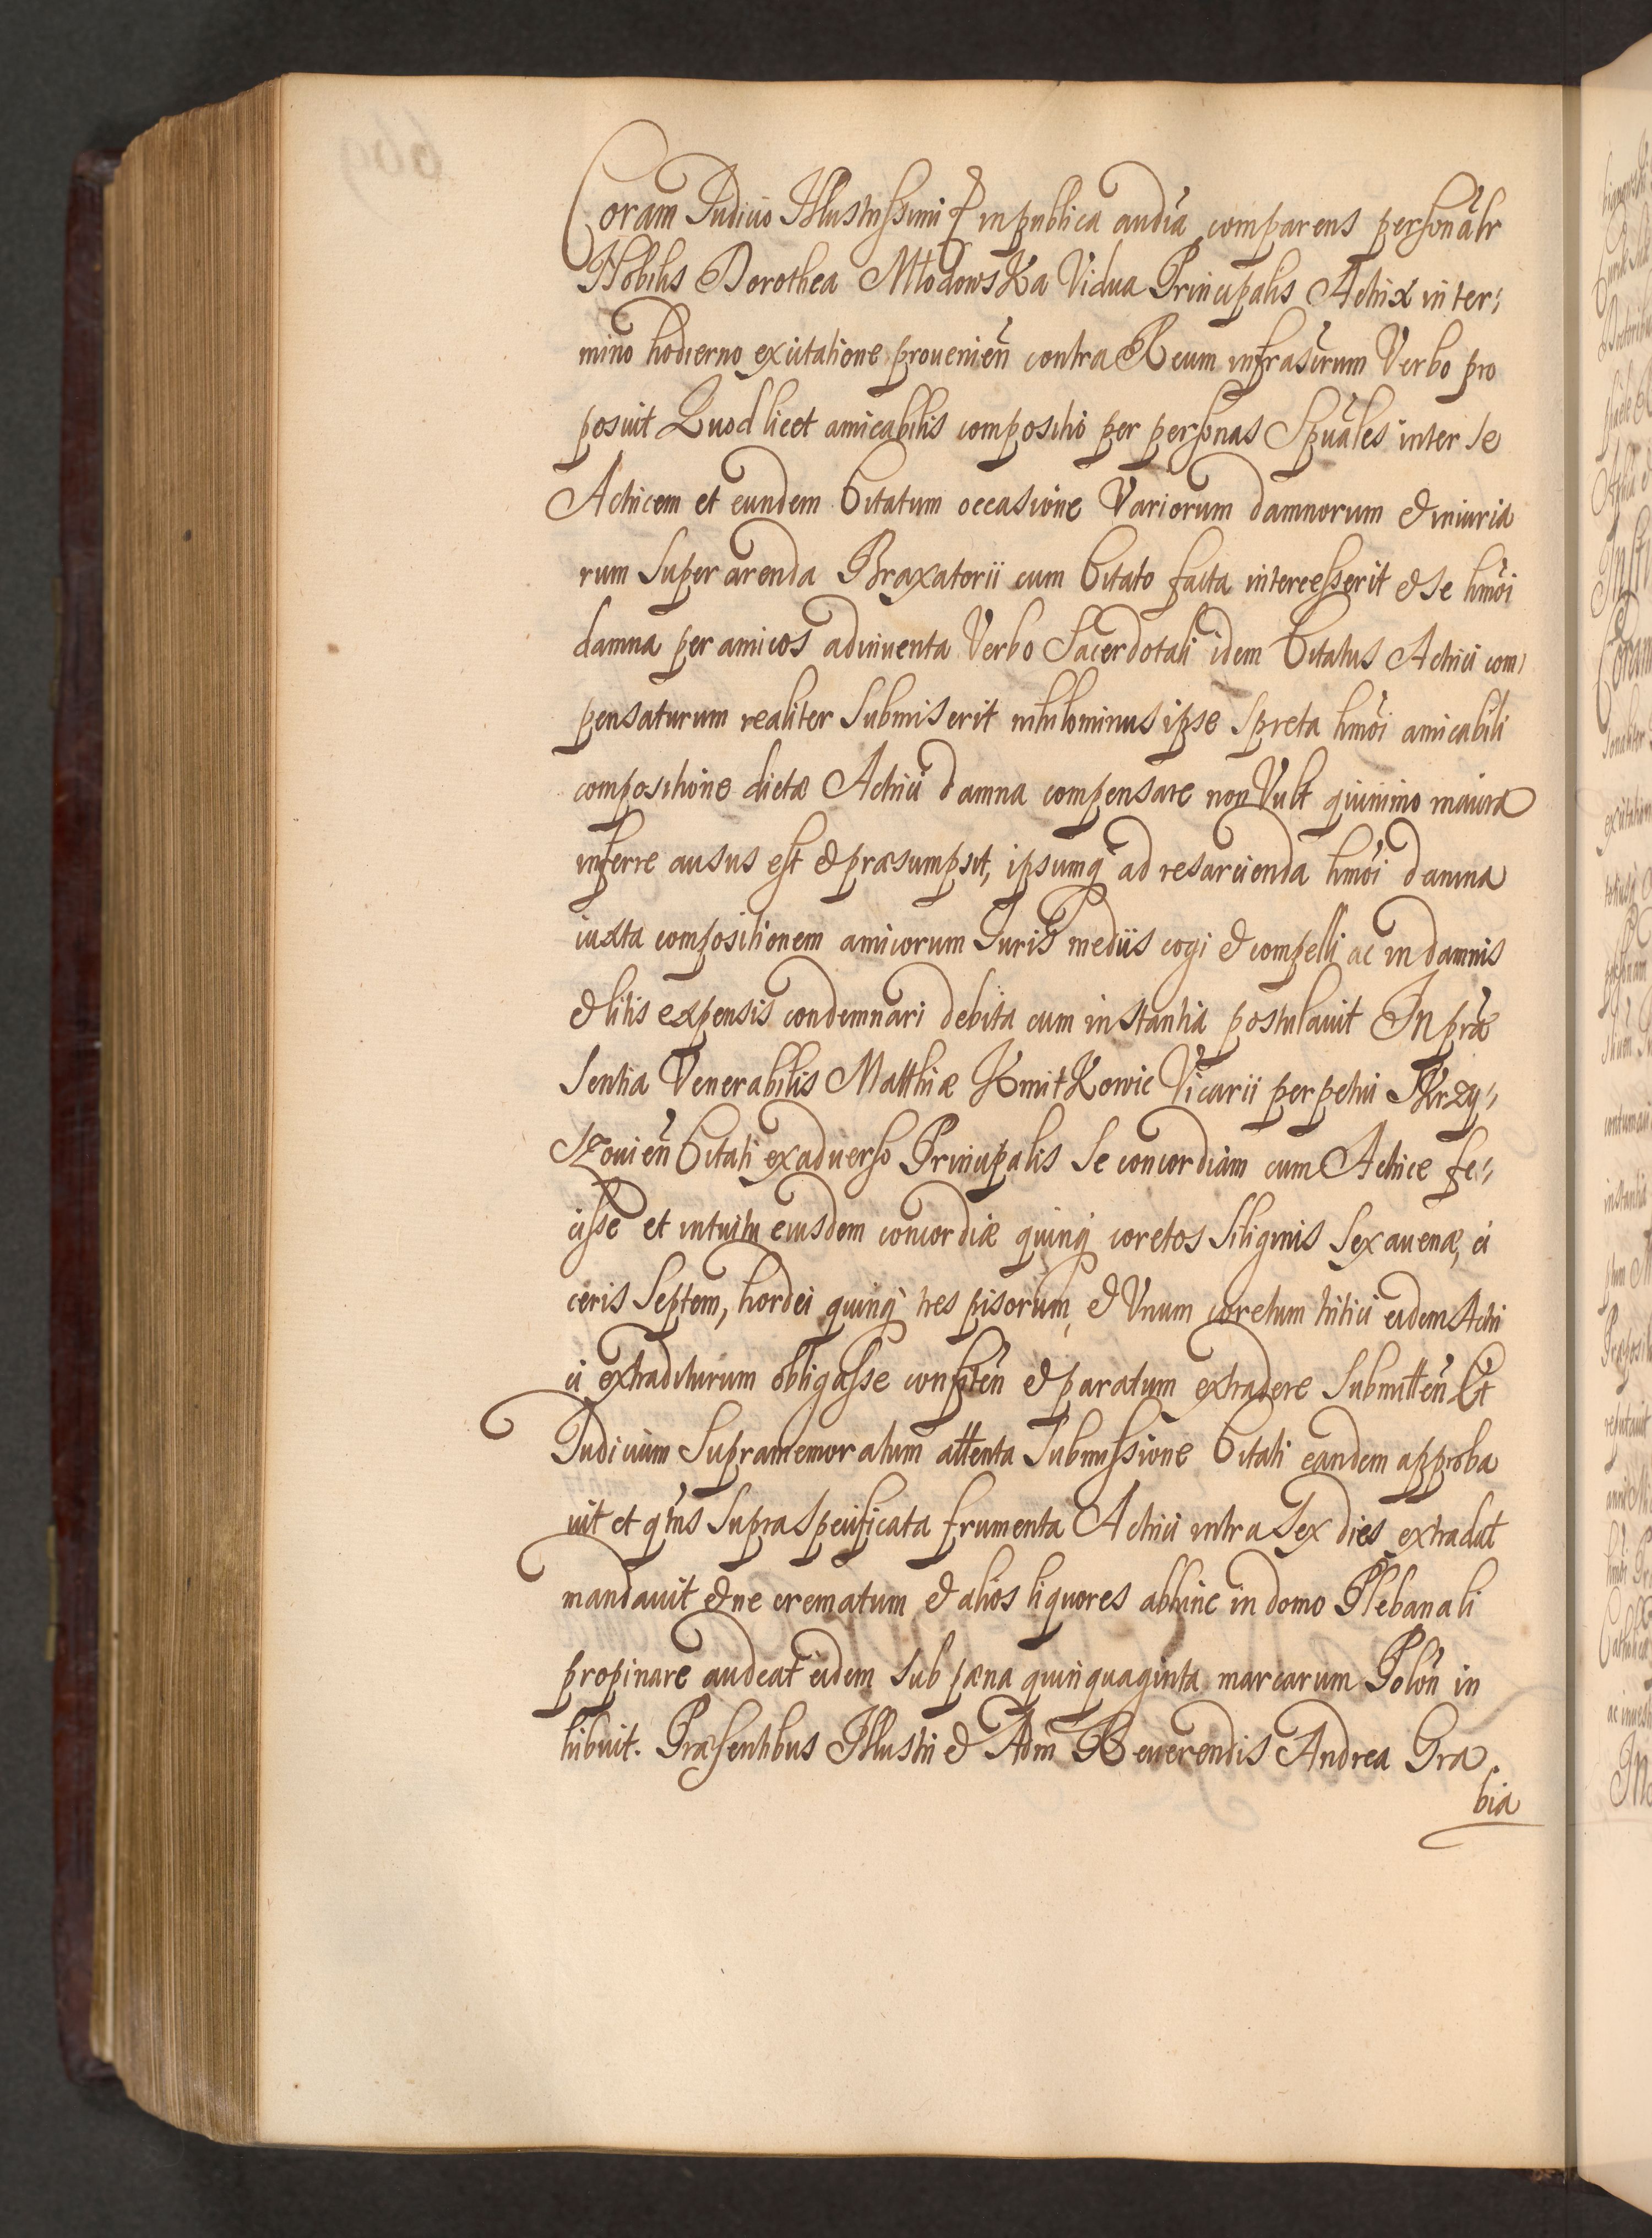 Coram Iudicio Illustrissimi & in publica audia comparens personalr
Nobilis Dorothea Młodowska Vidua Principalis Actrix in ter-
mino hodierno ex citatione prouenien contra Reum infrascrum Verbo pro
posuit Quod licet amicabilis compositio per personas Spuales inter se
Actricem et eundem Citatum occasione Variorum damnorum & iniuria
rum super arenda Braxatorii cum Citato facta intercesserit & se hmoi
damna per amicos adinuenta Verbo Sacerdotali idem Citatus Actrici com-
pensaturum realiter submiserit nihilominus ipse spreta hmoi amicabili
compositione dictæ Actrici damna compensare non Vult quinimo maiora
inferre ausus est & præsumpsit, ipsumq ad resarcienda hmoi damna
iuxta compositionem amicorum Iuris mediis cogi & compelli ac in damnis
& litis expensis condemnari debita cum instantia postulauit In præ
sentia Venerabilis Matthiæ Kmitkowic Vicarii perpetui Skrzy-
szouien Citati ex aduerso Principalis se concordiam cum Actrice fe-
cisse et intuitu eiusdem concordiæ quinq coretos siliginis sex auenæ, ci
ceris septem, hordei quinq tres pisorum, & Vnum coretum tritici eidem Actri
ci extraditurum obligasse confiten & paratum extradere submitten Et
Iudicium supramemoratum attenta submissione Citati eandem approba
uit et qtnus supra specificata frumenta Actrici intra sex dies extradat
mandauit & ne crematum & alios liquores abhinc in domo Plebanali
propinare audeat eidem sub pæna quinquaginta marcarum Polon in
hibuit. Præsentibus Illustri & Adm Reuerendis Andrea Gra
bia